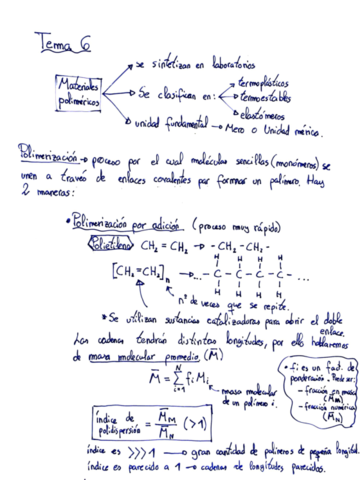 Tema 6
Materiales poliméricos
→ se sintetizan en laboratorios
→ Se clasifican en:
→ termoplásticos
→ termoestables
→ elastómeros
→ unidad fundamental → Mero o Unidad mérica.
Polimerización → proceso por el cual moléculas sencillas (monómeros) se
unen a través de enlaces covalentes par formar un polímero. Hay
2 maneras:
• Polimerización por adición. (proceso muy rápido)
Polietileno CH₂ = CH₂ → -CH₂ - CH₂ -
[CH₂=CH₂]n → ... - C - C - C - C - ...
H H H H
H H H H
nº de veces que se repite.
* Se utilizan sustancias catalizadoras para abrir el doble
enlace.
Las cadenas tendrán distintas longitudes, por ello hablaremos
de masa molecular promedio (M̄)
M̄ = Σ fi Mi
N
i=1
→ masa molecular
de un polímero i.
• fi es un fact. de
ponderación.
- fracción en masa
(M̄M)
- fracción numérica
(M̄N)
índice de
polidispersión = M̄M / M̄N (>1)
índice es >>>1 → gran cantidad de polímeros de pequeña longitud.
índice es parecido a 1 → cadenas de longitudes parecidas.